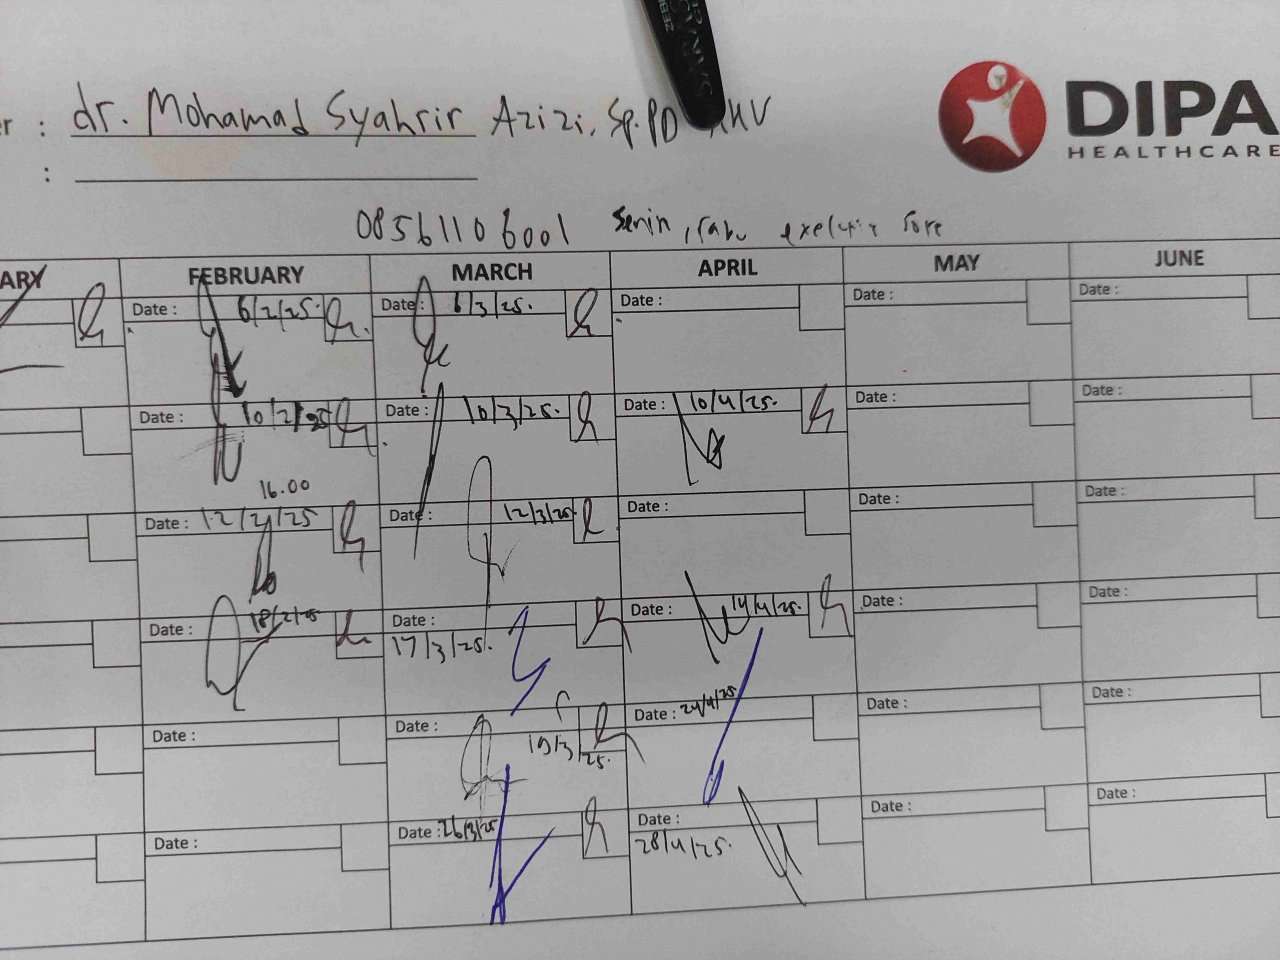 er : dr. Mohamad Syahrir Azizi, Sp.PD
:
DIPA
HEALTHCARE
085611106001 Senin, rabu sore
ARY FEBRUARY MARCH APRIL MAY JUNE
Date : 6/2/25. Date : 6/3/25. Date : Date : Date :
Date : 10/2/25 Date : 10/3/25. Date : 10/4/25. Date : Date :
16.00
Date : 12/2/25 Date : 12/3/25 Date : Date : Date :
Date : 18/2/25 Date : 17/3/25. Date : 14/4/25. Date : Date :
Date : Date : 19/3/25. Date : 24/4/25 Date : Date :
Date : Date : 26/3/25 Date : 28/4/25. Date : Date :